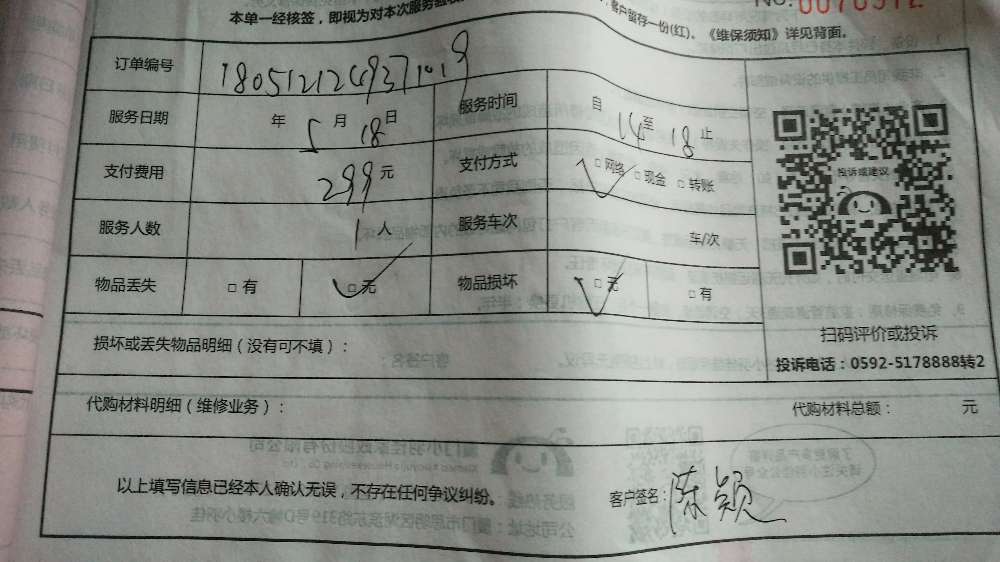 本单一经核签，即视为对本次服务
客户留存一份(红)、《维保须知》详见背面。
订单编号 1805121249371019
服务日期 年 5 月 18 日 服务时间 自 14 至 18 止
支付费用 299 元 支付方式 □网络 □现金 □转账
投诉或建议
服务人数 1 人 服务车次 车/次
物品丢失 □有 □无 物品损坏 □无 □有
扫码评价或投诉
损坏或丢失物品明细（没有可不填）：
投诉电话：0592-5178888转2
代购材料明细（维修业务）： 代购材料总额： 元
以上填写信息已经本人确认无误，不存在任何争议纠纷。 客户签名：陈颖